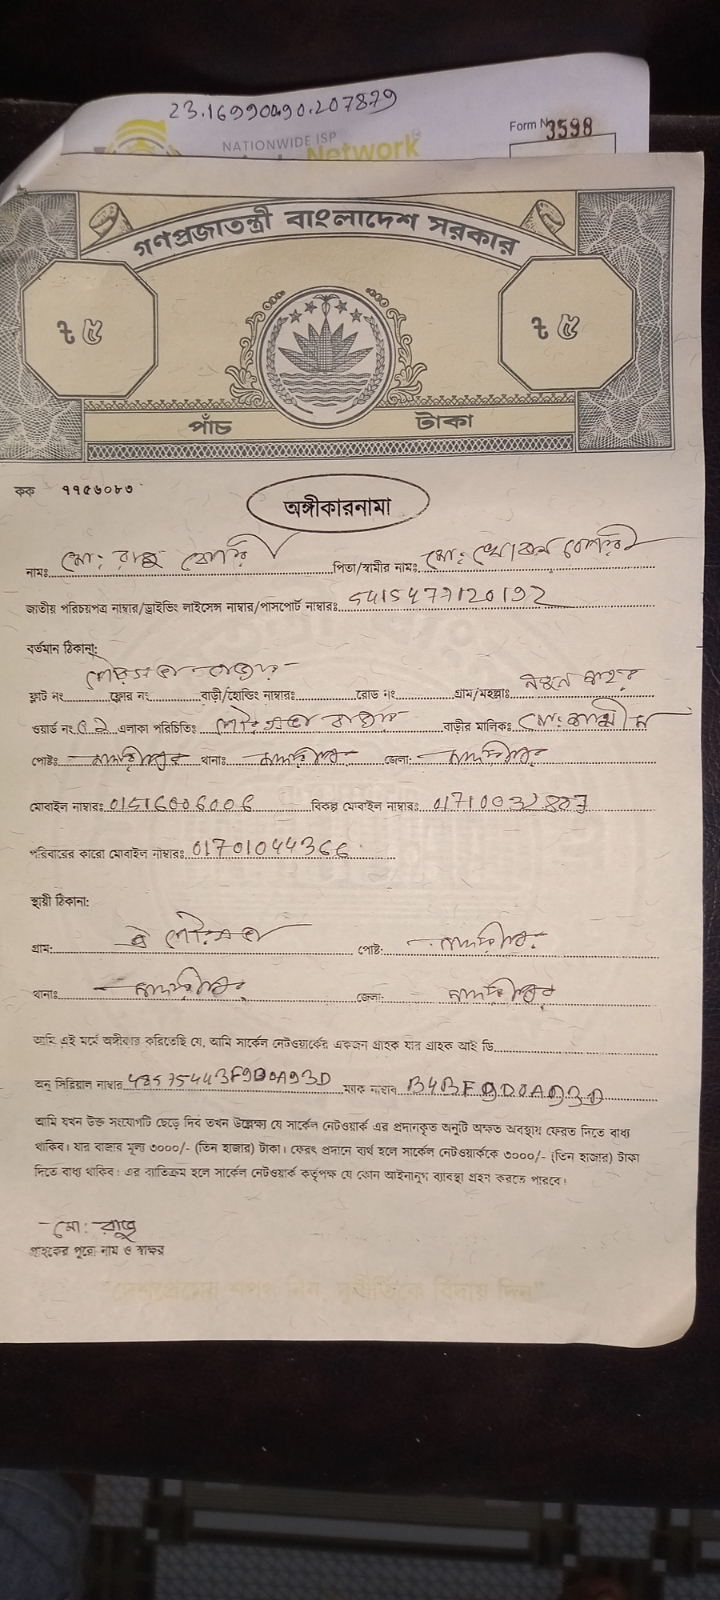 23.16990,90.207879
Form N 3598
NATIONWIDE ISP
Network
গণপ্রজাতন্ত্রী বাংলাদেশ সরকার
৳ ৫ ৳ ৫
পাঁচ টাকা
কক ৭৭৫৬০৮৩
অঙ্গীকারনামা
নামঃ মো: রাজু বেপারি পিতা/স্বামীর নামঃ মো: খোকন বেপারি
জাতীয় পরিচয়পত্র নাম্বার/ড্রাইভিং লাইসেন্স নাম্বার/পাসপোর্ট নাম্বারঃ 5415479120192
বর্তমান ঠিকানা:
ফ্লাট নং ফ্লোর নং বাড়ী/হোল্ডিং নাম্বারঃ রোড নং গ্রাম/মহল্লাঃ নতুন শহর
ওয়ার্ড নং এলাকা পরিচিতিঃ বাড়ীর মালিকঃ মো:
পোষ্টঃ মাদারীপুর থানাঃ মাদারীপুর জেলা: মাদারীপুর
মোবাইল নাম্বারঃ বিকল্প মোবাইল নাম্বারঃ
পরিবারের কারো মোবাইল নাম্বারঃ 01701044366
স্থায়ী ঠিকানা:
গ্রাম: পোষ্ট: মাদারীপুর
থানাঃ মাদারীপুর জেলা: মাদারীপুর
আমি এই মর্মে অঙ্গীকার করিতেছি যে, আমি সার্কেল নেটওয়ার্কের একজন গ্রাহক যার গ্রাহক আই ডি
অনু সিরিয়াল নাম্বার 48575443F9D0A93D ম্যাক নাম্বার B4BF9D0A93D
আমি যখন উক্ত সংযোগটি ছেড়ে দিব তখন উল্লেক্ষ্য যে সার্কেল নেটওয়ার্ক এর প্রদানকৃত অনুটি অক্ষত অবস্থায় ফেরত দিতে বাধ্য
থাকিব। যার বাজার মূল্য ৩০০০/- (তিন হাজার) টাকা। ফেরৎ প্রদানে ব্যর্থ হলে সার্কেল নেটওয়ার্ককে ৩০০০/- (তিন হাজার) টাকা
দিতে বাধ্য থাকিব। এর ব্যতিক্রম হলে সার্কেল নেটওয়ার্ক কর্তৃপক্ষ যে কোন আইনানুগ ব্যবস্থা গ্রহন করতে পারবে।
মো: রাজু
গ্রাহকের পুরো নাম ও স্বাক্ষর
"দেশপ্রেমের শপথ নিন, দুর্নীতিকে বিদায় দিন"